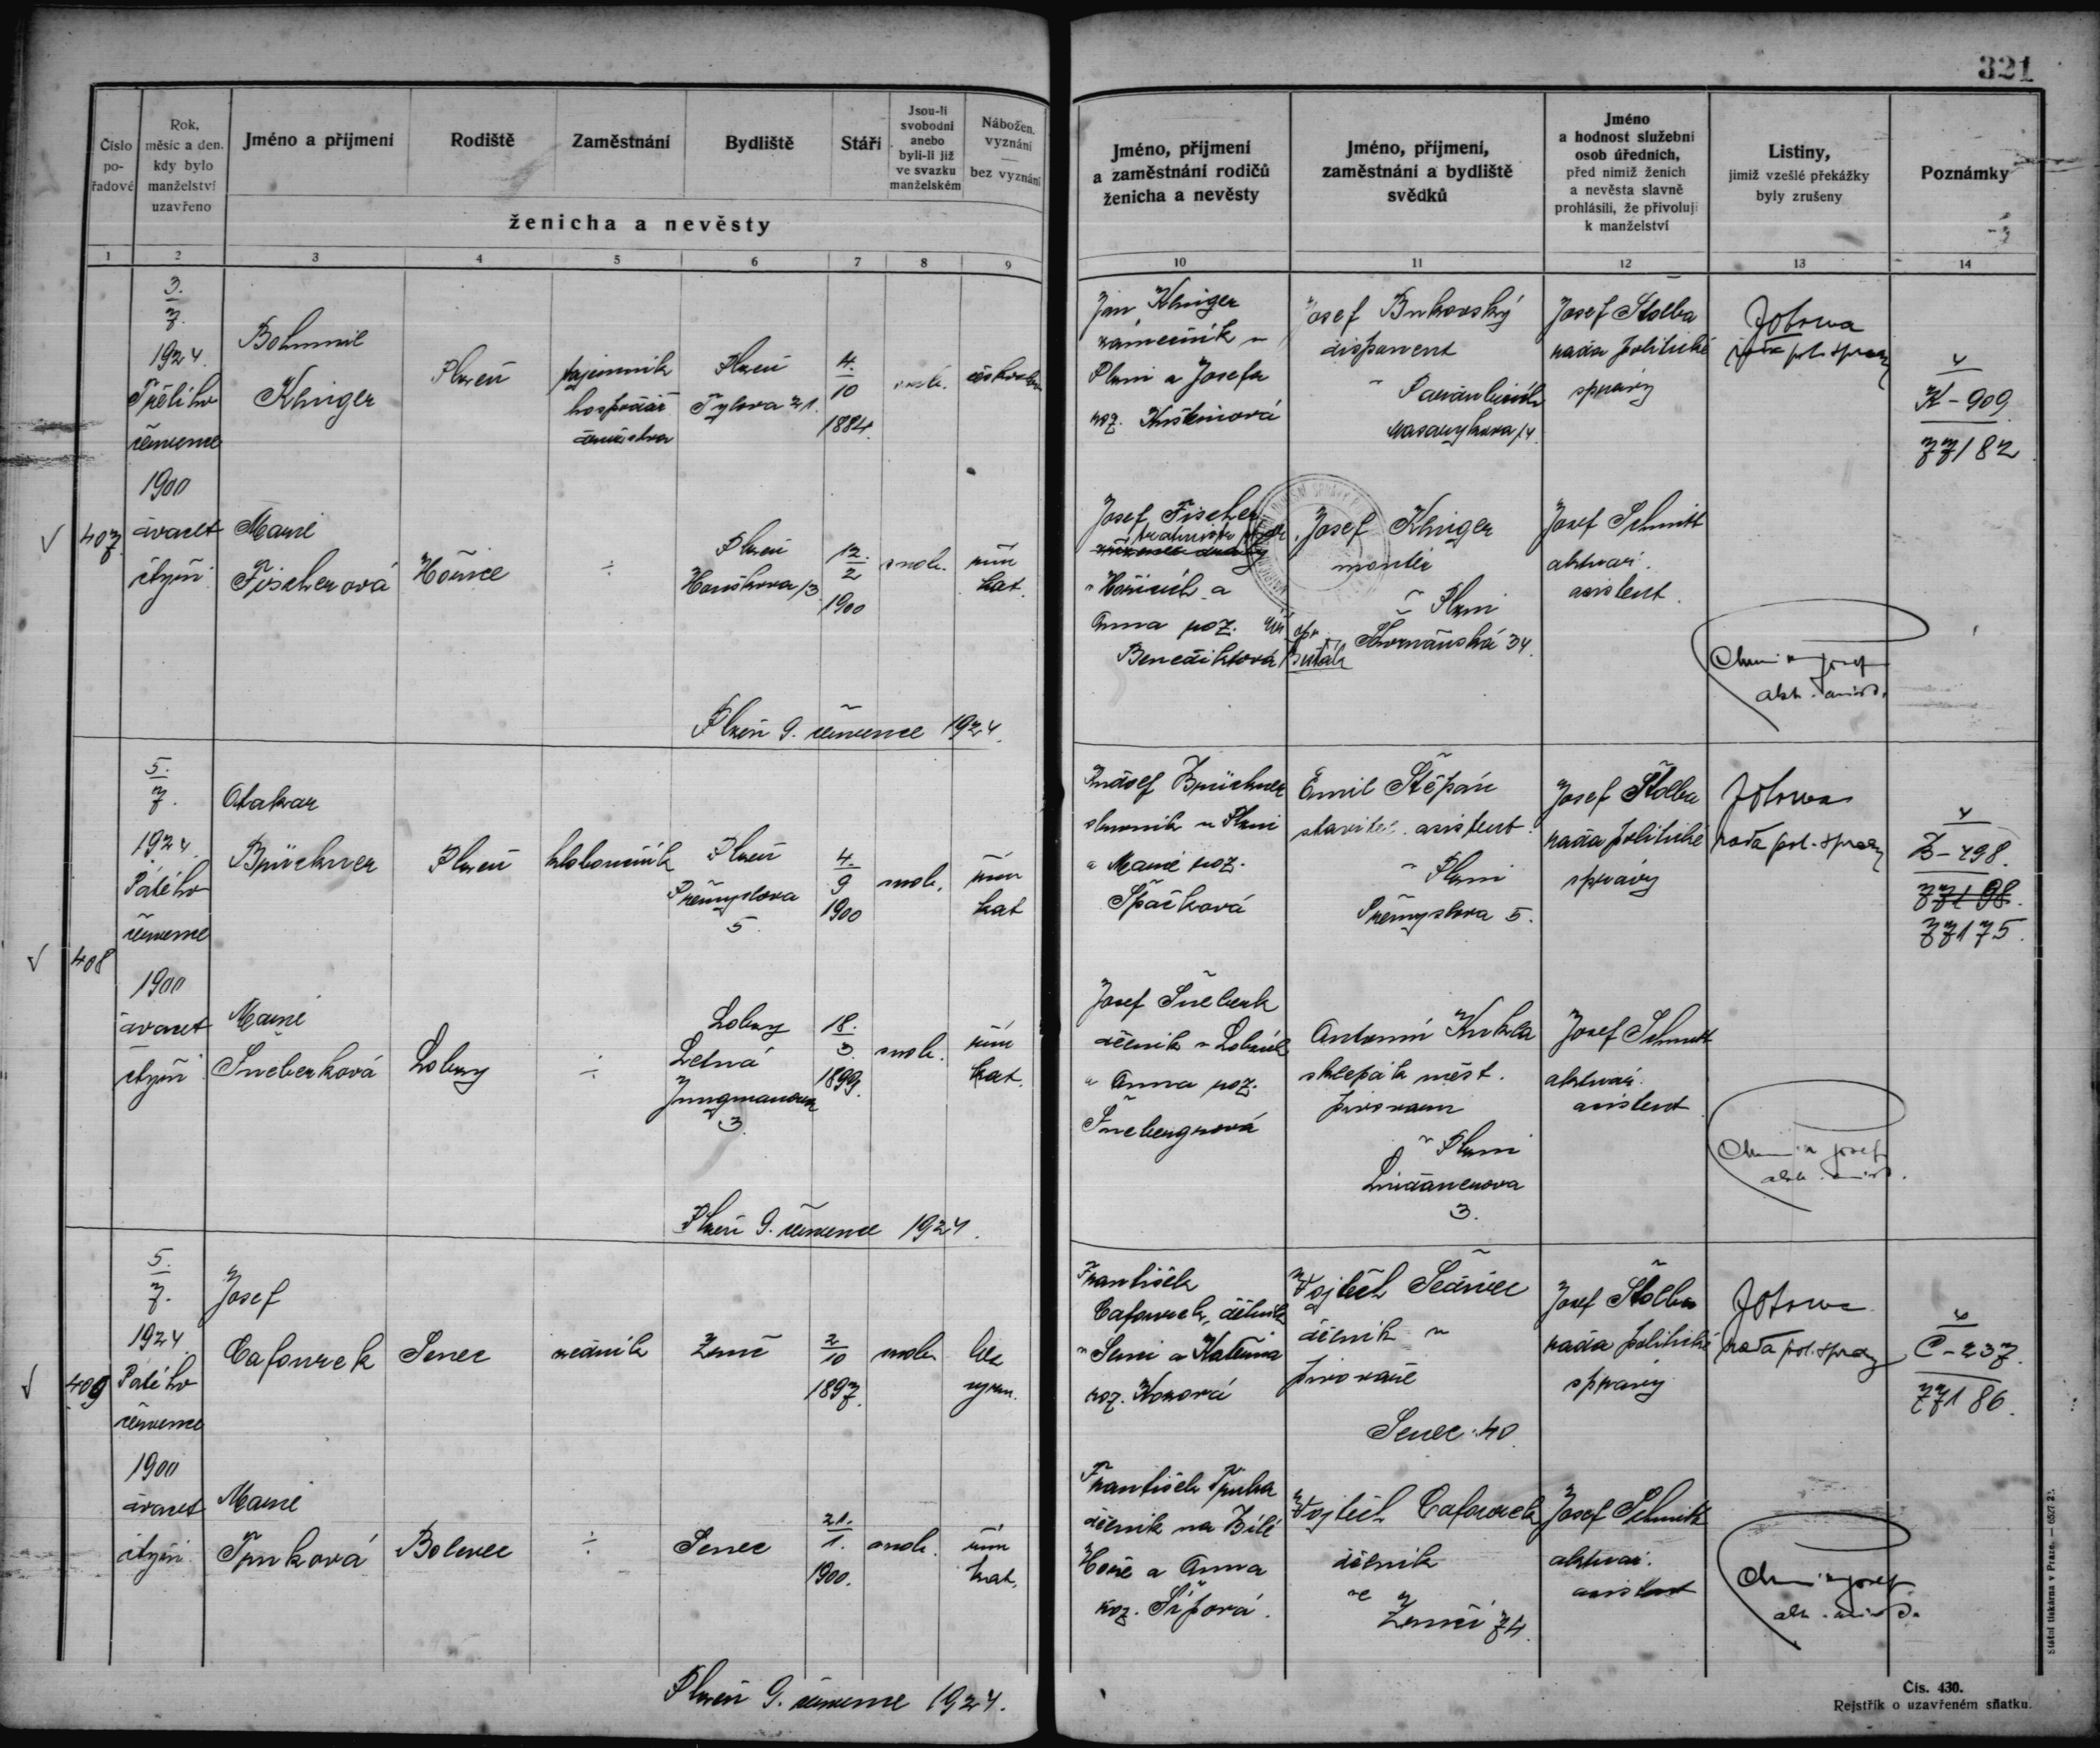 321
Číslo
po-
řadové
Rok,
měsíc a den,
kdy bylo
manželství
uzavřeno
Jméno a příjmení
Rodiště
Zaměstnání
Bydliště
Stáří
Jsou-li
svobodni
anebo
byli-li již
ve svazku
manželském
Nábožen.
vyznání
bez vyznání
ženicha a nevěsty
Jméno, příjmení
a zaměstnání rodičů
ženicha a nevěsty
Jméno, příjmení,
zaměstnání a bydliště
svědků
Jméno
a hodnost služební
osob úředních,
před nimiž ženich
a nevěsta slavně
prohlásili, že přivolují
k manželství
Listiny,
jimiž vzešlé překážky
byly zrušeny
Poznámky
1 2 3 4 5 6 7 8 9 10 11 12 13 14
407
3.
7.
1924.
Třetího
července
1900
dvacet
čtyři
Bohumil
Klinger
Plzeň
tajemník
hospodář
družstva
Plzeň
Tylova 21.
4.
10
1884.
svob.
českobr.
Marie
Fischerová
Hořice
÷
Plzeň
Houškova 13
12.
2
1900
svob.
řím
kat.
Plzeň 9. července 1924.
Jan Klinger
zámečník v
Plzni a Josefa
roz.
Josef Bukovský
disponent
v Pardubicích
Masarykova 14.
Josef Štolba
rada politické
správy
rada pol. správy
4
K-909
77182
Josef Fischer
v Hořicích a
Anna roz.
Benediktová
Josef Klinger
montér
v Plzni
34.
Josef Schmitt
aktuár.
asistent.
408
5.
7.
1924.
Pátého
července
1900
dvacet
čtyři
Otakar
Brüchner
Plzeň
kloboučník
Plzeň
Přemyslova
5.
4.
9
1900
svob.
řím
kat
Marie
Šneberková
Lobzy
÷
Lobzy
Letná
Jungmanova
3.
18.
3.
1899.
svob.
řím
kat.
Plzeň 9. července 1924.
Rudolf Brüchner
v Plzni
a Marie roz.
Špačková
Emil Štěpán
stavitel. asistent
v Plzni
Přemyslova 5.
Josef Štolba
rada politické
správy
rada pol. správy
4
B-498.
77198.
77175.
Josef Šneberk
dělník v Lobzích
a Anna roz.
Šnebergrová
Antonín Kukla
sklepák měst.
pivovaru
v Plzni
Lindauerova
3.
Josef Schmitt
aktuár.
asistent
409
5.
7.
1924.
Pátého
července
1900
dvacet
čtyři
Josef
Cafourek
Senec
Zruč
2
10
1897.
svob
bez
vyzn.
Marie
Trnková
Bolevec
÷
Senec
21.
1.
1900.
svob.
řím
kat.
Plzeň 9. července 1924.
František
Cafourek, dělník
v Senci a Kateřina
roz.
Vojtěch Sedivec
dělník v
pivovaře
Senec 40.
Josef Štolba
rada politické
správy
rada pol. správy
4
C-237.
77186.
František Trnka
dělník na Bílé
Hoře a Anna
roz. Šípová.
Vojtěch Cafourek
dělník
ve
Zruči 74.
Josef Schmitt
aktuár.
asistent
Státní tiskárna v Praze.
Čís. 430.
Rejstřík o uzavřeném sňatku.